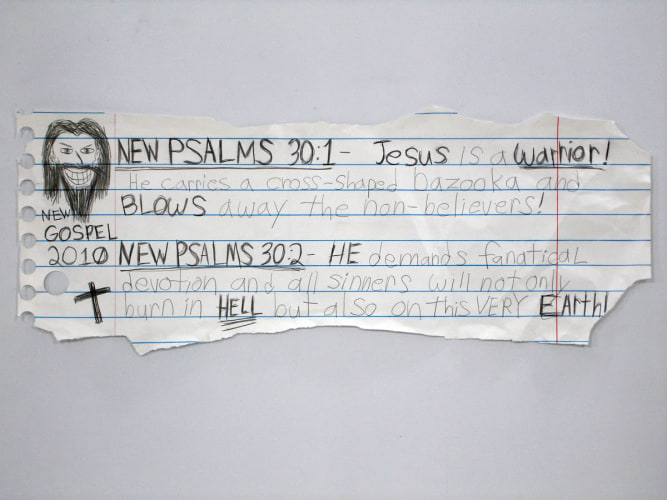 NEW PSALMS 30:1- Jesus is a warrior!
He carries a cross-shaped bazooka and
BLOWS away the non-believers!
NEW
GOSPEL
2010
NEW PSALMS 30:2- HE demands fanatical
devotion and all sinners will not only
burn in HELL but also on this VERY EArth!